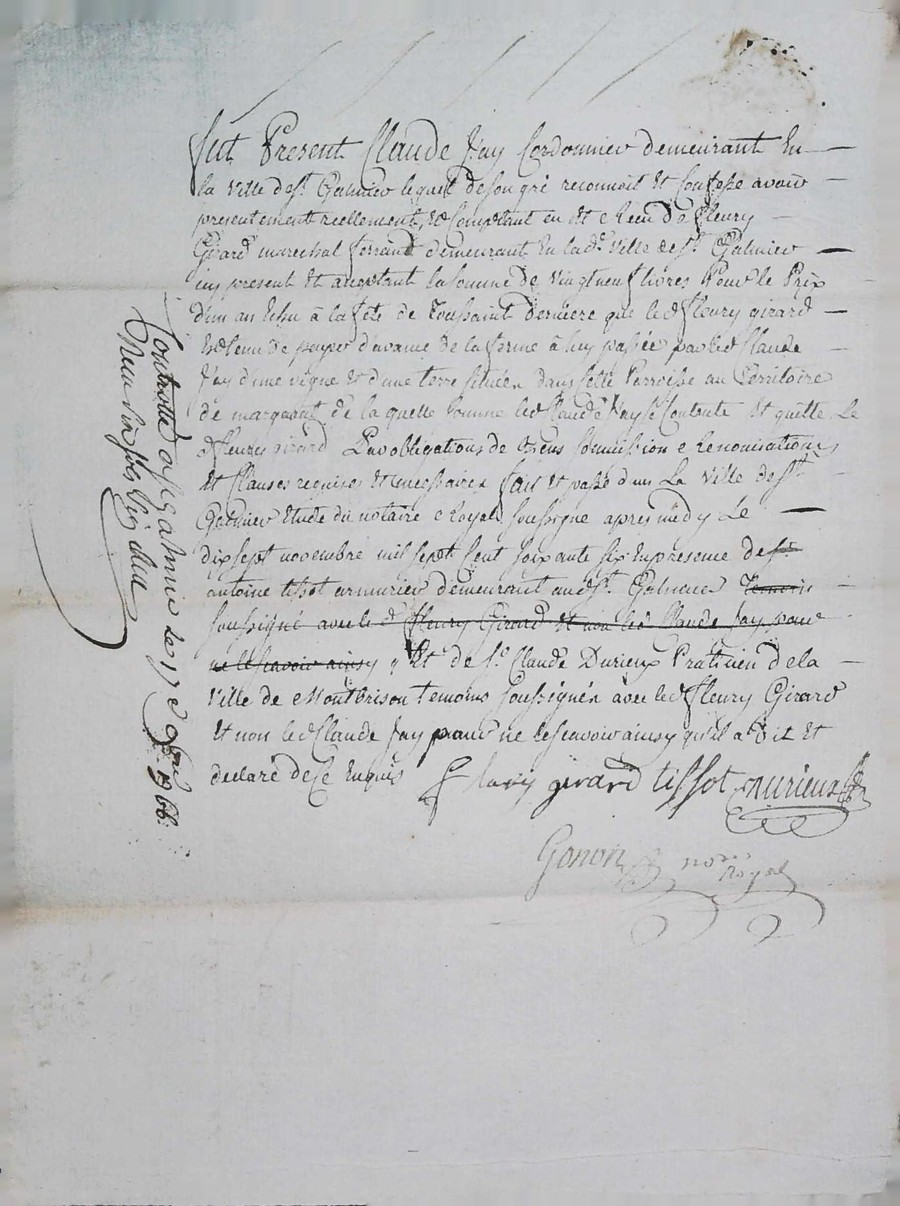 fut Present Claude Jay Cordonnier demeurant En
la ville de st. Galmier lequel de son gré reconnoit et confesse avoir
presentement reellement, et Comptant eu et Receu de fleury
Girard marechal ferrand demeurant En lad. ville de st. Galmier
icy present et aceptant la somme de vingtneuf livres Pour le Prix
d'un an Echu à la fete de Toussaint derniere que led fleury girard
Est tenu de payer d'avance de la ferme à luy passée par led Claude
Jay d'une vigne et d'une terre situées dans cette Parroisse au Territoire
de margeant de la quelle somme led Claude Jay se Contente et quitte Le
d fleury girard Par obligations de Biens soumission Renonciations
et Clauses requises et necessaires fait et passé dans La ville de st
Galmier Etude du notaire Royal soussigné apres midy Le
dix sept novembre mil sept Cent soixante six En presence de sr.
antoine tissot armurier demeurant aud st. Galmier Temoin
soussigné avec le d fleury Girard et non led Claude Jay pour
ne le scavoir ainsy q Et de sr. Claude Durieux Praticien de la
ville de Montbrison temoins soussignés avec led fleury Girard
et non led Claude Jay pour ne le scavoir ainsy qu'il a Dit et
declaré de ce Enquis
flury girard tissot Durieux
Gonon nore Royal
Controllé a st galmier le 17 e 9bre 1766.
neuf six sols